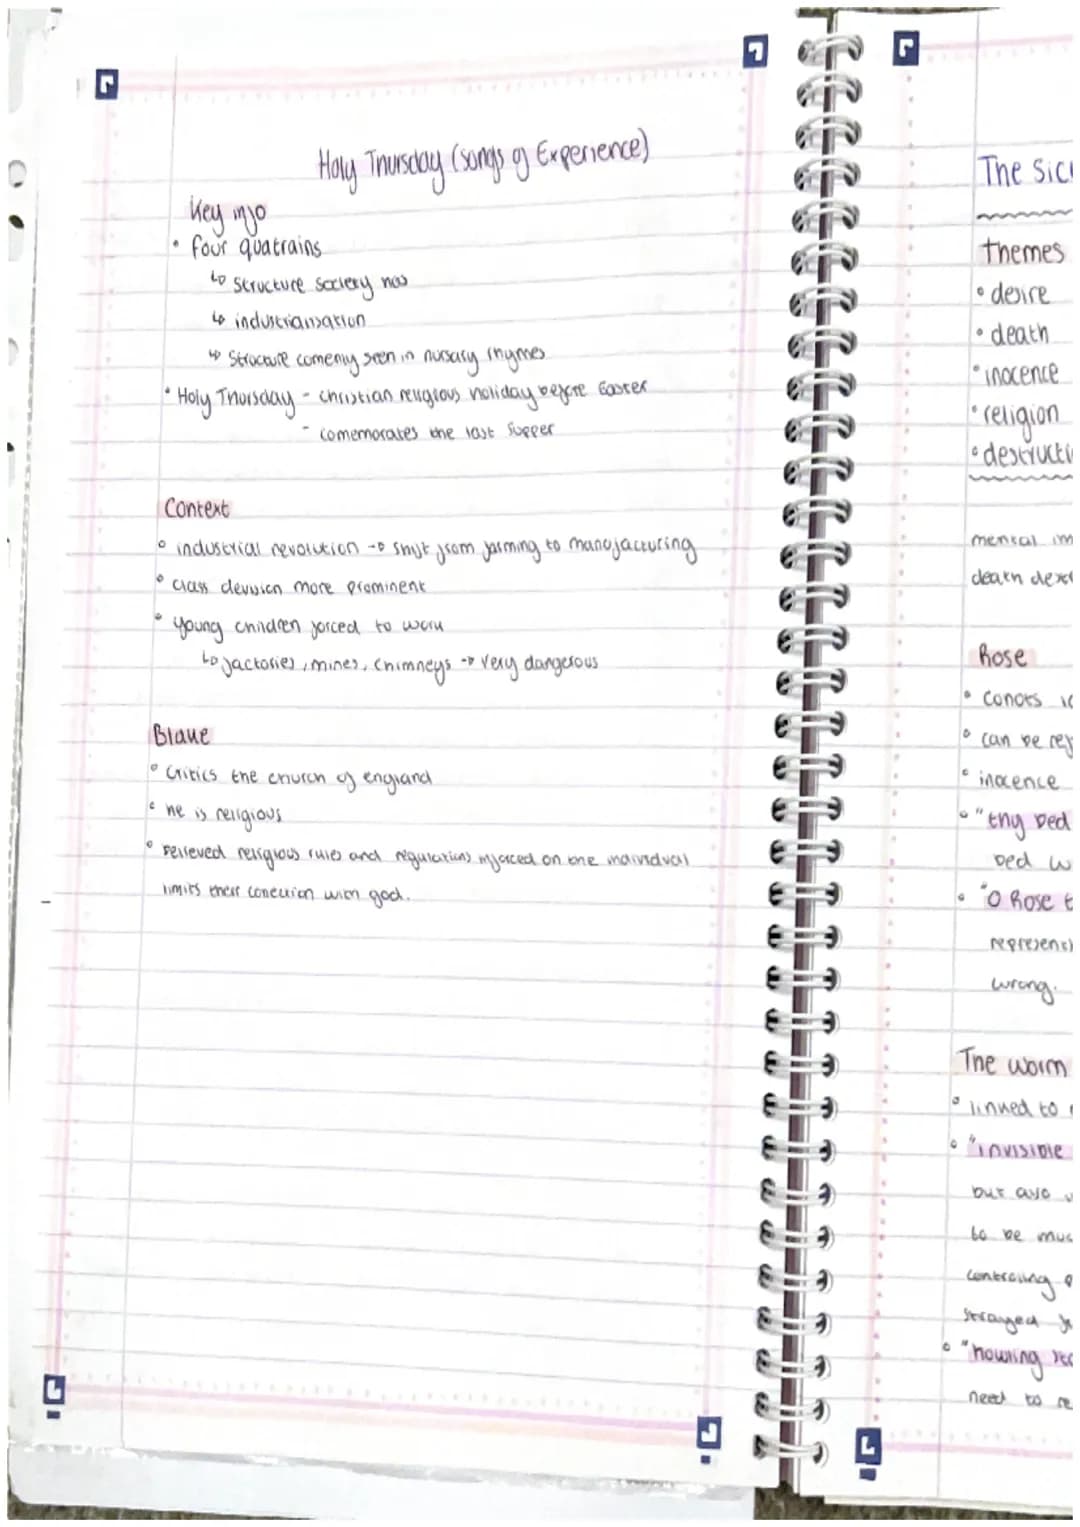 Holy Thursday (songs of Experience)
Key info
• four quatrains
↳ Structure society has
↳ industrialisation
↳ Structure comenly seen in nursary rhymes
• Holy Thursday - christian religious holiday before Easter
- comemorates the last Supper
Context
• industrial revolution → shift from farming to manofacturing
• class devision more prominent
• young children forced to work
↳ factories, mines, chimneys → very dangerous
Blake
• Critics the church of england
• he is religious
• believed religious rules and regulations inforced on the individual
limits their conection with god.
The Sick
themes
• desire
• death
• inocence
• religion
• destructi
mental im
death
Rose
• Conots
• can be
• inocence
• "thy bed
bed w
• "O Rose t
represents
wrong.
The worm
• linked to
• "invisible
but also
to be muc
controling
strayed
• "howling sto
need to re